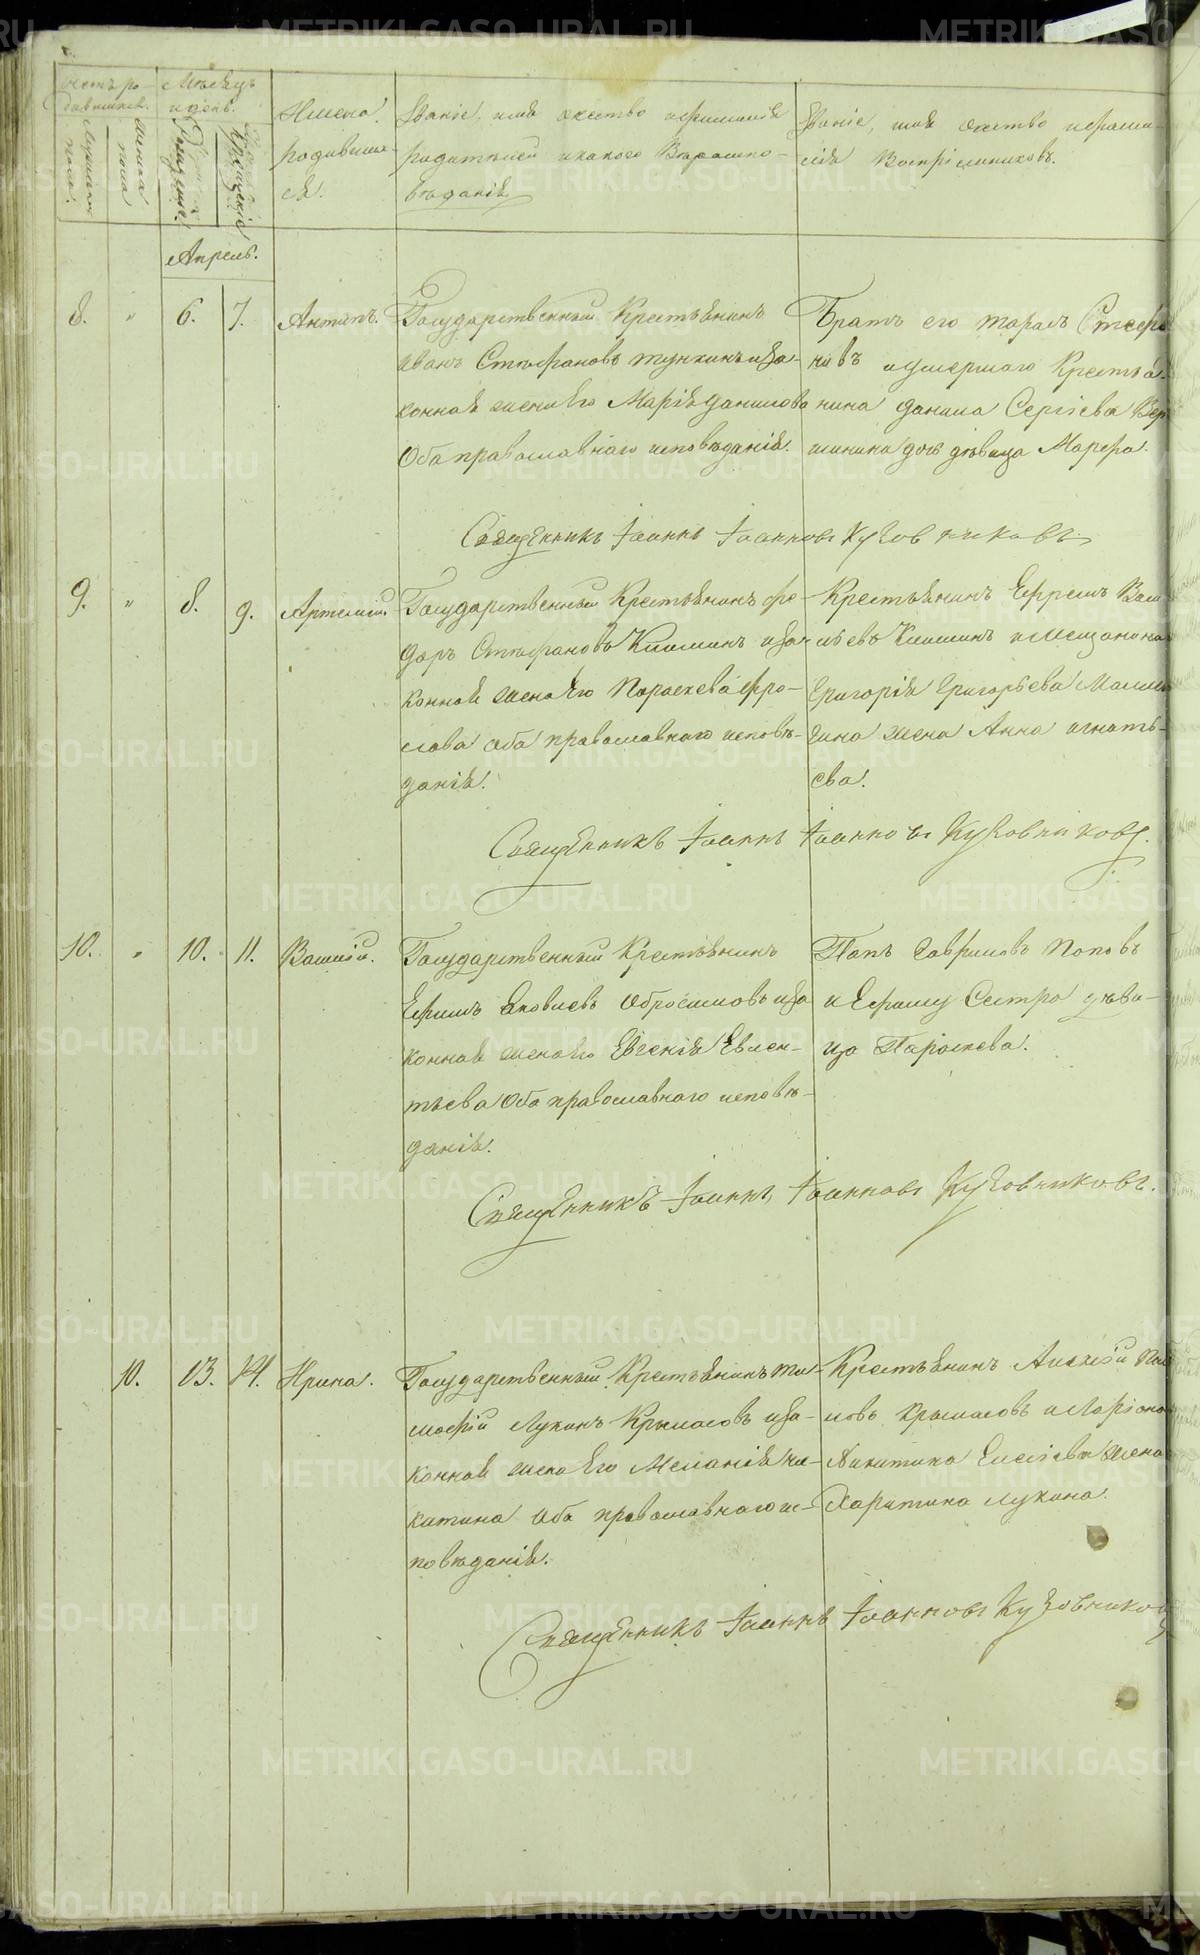 Счетъ ро-
дившихся.
Мужеска
пола.
Женска
пола
Мѣсяцъ
и день.
Рожденія.
Крещенія
Имена
родивших-
ся.
Званіе, имя отчество и фамилія
родителей и какого Вѣроиспо-
вѣданія.
Званіе, имя отчество и фами-
лія Воспріемниковъ.
Апрель.
8. " 6. 7. Антипъ.
Государственный Крестьянинъ
Иванъ Стефановъ и за-
конная жена его Марія Данилова
Оба православнаго исповѣданія.
Братъ его Тарасъ Стефа
новъ и умершаго Крестья-
нина Данила Сергіева Вер
шинина дочь дѣвица Марфа.
Священникъ Іоаннъ Іоанновъ Кузовниковъ
9. " 8. 9. Артемій.
Государственный Крестьянинъ Фе-
доръ Стефановъ и за-
конная жена его Параскева Фро-
лова оба православнаго исповѣ-
данія.
Крестьянинъ Ефремъ Васи
льевъ и мещанина
Григорія Григорьева
жена Анна Игнать-
ева.
Священникъ Іоаннъ Іоанновъ Кузовниковъ.
10. " 10. 11. Василій.
Государственный Крестьянинъ
Ефимъ Яковлевъ Обросимовъ и за
конная жена его Евгенія Евлен-
тьева Оба православнаго исповѣ-
данія.
Гавриловъ Поповъ
и Ефиму Сестра дѣви-
ца Параскева.
Священникъ Іоаннъ Іоанновъ Кузовниковъ.
10. 13. 14. Ирина.
Государственный Крестьянинъ Ти-
мофій Лукинъ Крымасовъ и за-
конная жена Его Меланія Ни-
китина оба православнаго ис-
повѣданія.
Крестьянинъ Алексій
ловъ Крымасовъ и Ларіона
Никитина Елесіева жена
Харитина Лукина.
Священникъ Іоаннъ Іоанновъ Кузовниковъ
METRIKI.GASO-URAL.RU